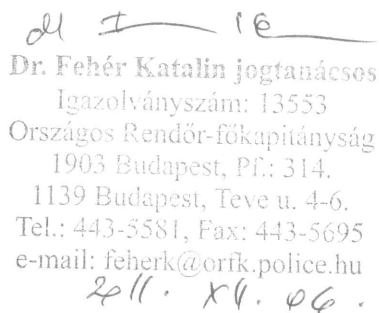 Dr. Fehér Katalin jogtanácsos
Igazolványszám: 13553
Országos Rendőr-főkapitányság
1903 Budapest, Pf.: 314.
1139 Budapest, Teve u. 4-6.
Tel.: 443-5581, Fax: 443-5695
e-mail: feherk@orfk.police.hu
2011. XII. 06.